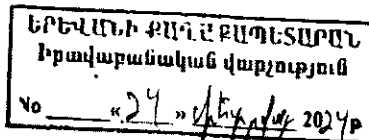 ԵՐԵՎԱՆԻ ՔԱՂԱՔԱՊԵՏԱՐԱՆ
Իրավաբանական վարչություն
№ « 24 » 2024թ